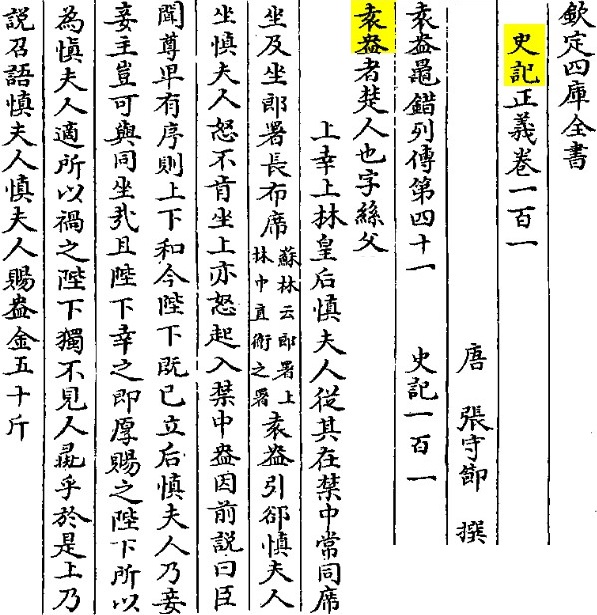 欽定四庫全書
史記正義卷一百一
唐 張守節 撰
袁盎鼂錯列傳第四十一 史記一百一
袁盎者楚人也字絲父
上幸上林皇后慎夫人從其在禁中常同席
坐及坐郎署長布席
蘇林云郎署上
林中直衛之署
袁盎引郤慎夫人
坐慎夫人怒不肯坐上亦怒起入禁中盎因前説曰臣
聞尊卑有序則上下和今陛下既已立后慎夫人乃妾
妾主豈可與同坐哉且陛下幸之即厚賜之陛下所以
為慎夫人適所以禍之陛下獨不見人彘乎於是上乃
説召語慎夫人慎夫人賜盎金五十斤